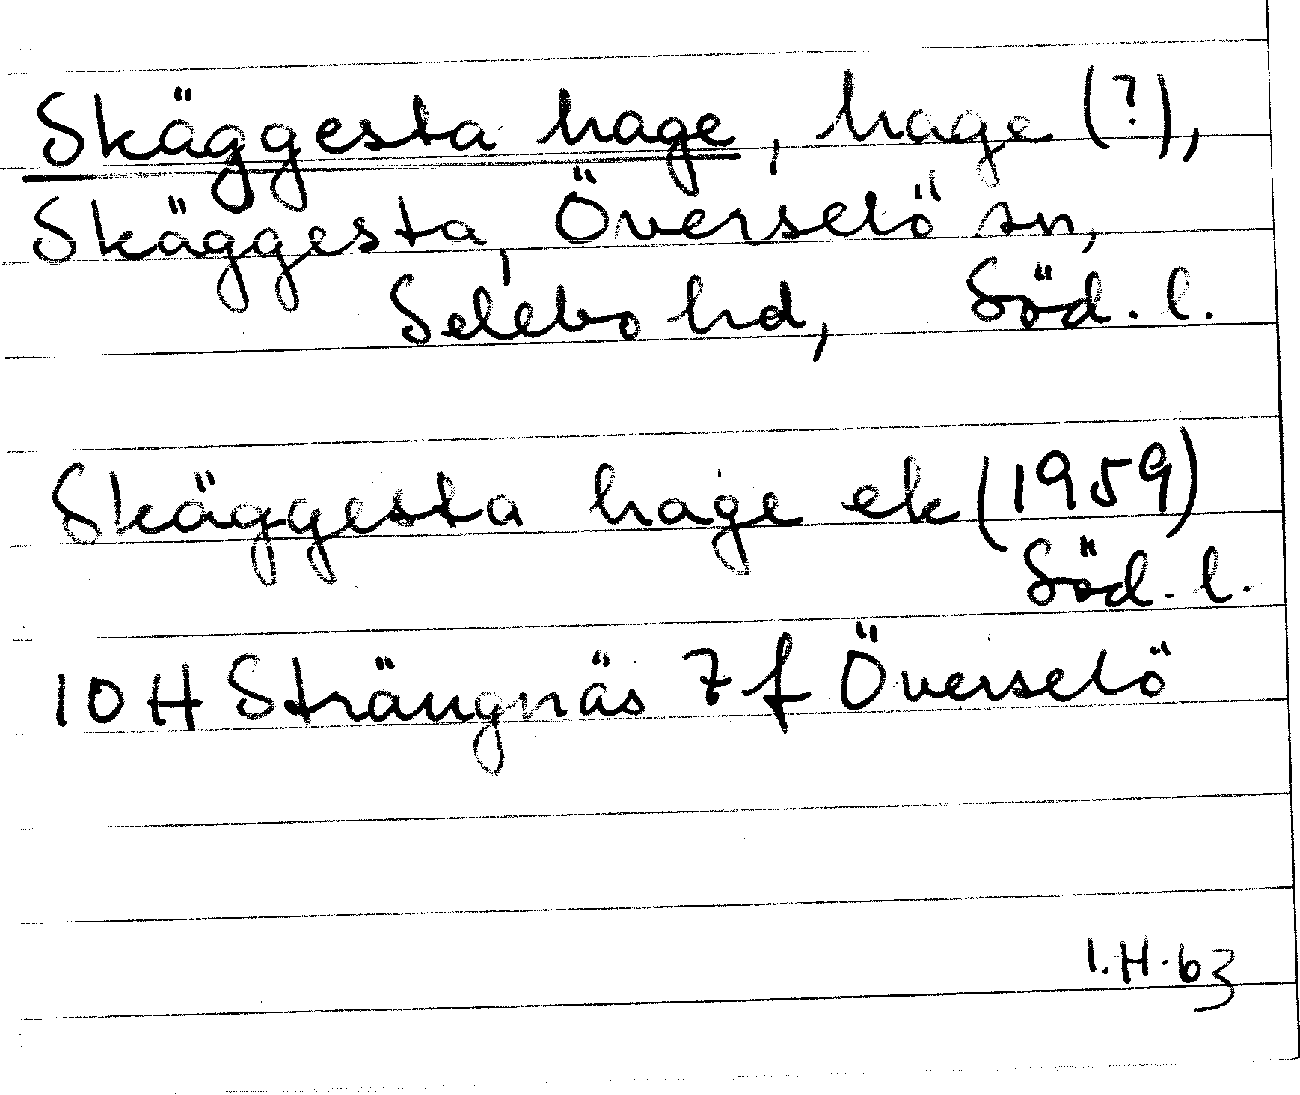 Skäggesta hage, hage (?),
Skäggesta, Överselö sn,
Selebo hd, Söd. l.
Skäggesta hage ek (1959)
Söd. l.
10 H Strängnäs 7 f Överselö
I.H. 63